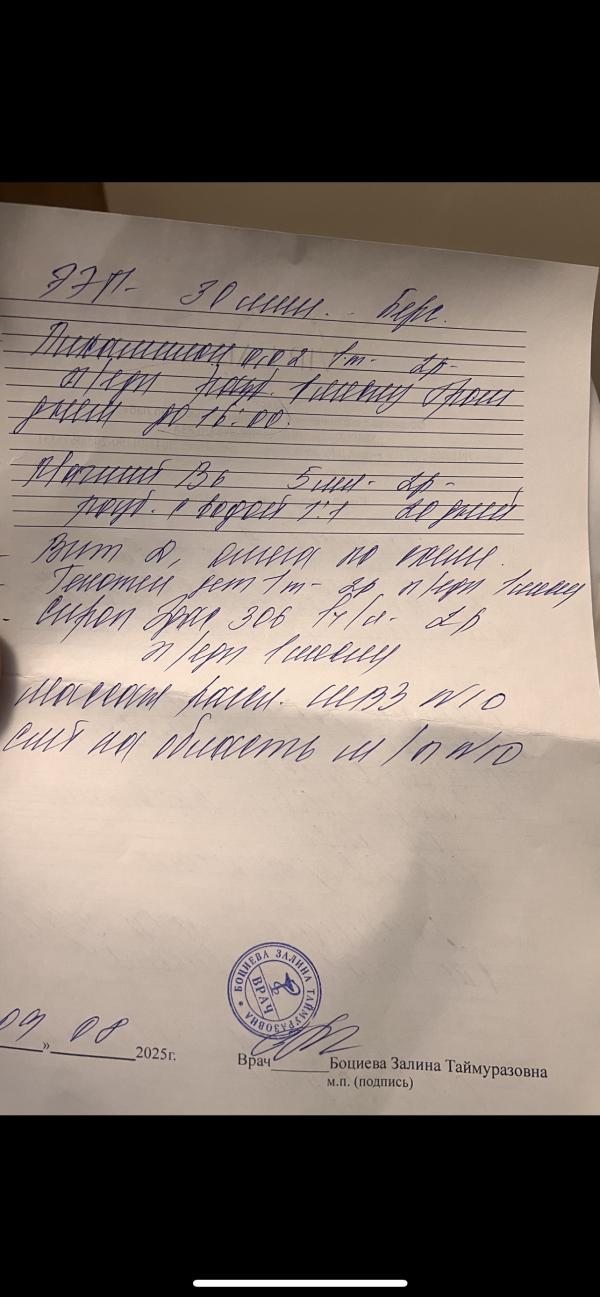 ЭЭГ- 30 мин.
Пикамилон 0.02 1т- 2р-
п/еды 1 месяц
днем до 16:00.
Магний В6 5мл- 2р-
разб. с водой 1:1 20 дней
Вит Д, омега по схеме.
Тенотен дет 1т- 2р п/еды 1 месяц
Сироп 306 1ч/л- 2р
п/еды 1 месяц
Массаж рассл. ШВЗ №10
СМТ на область м/п №10
09 08
»
2025г.
БОЦИЕВА ЗАЛИНА ТАЙМУРАЗОВНА
ВРАЧ
Врач Боциева Залина Таймуразовна
м.п. (подпись)